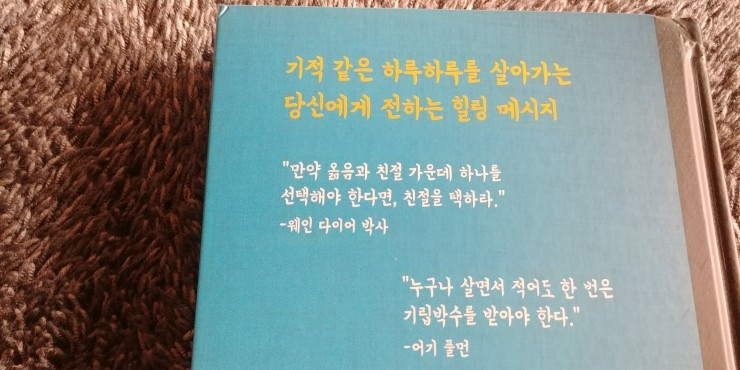 기적 같은 하루하루를 살아가는
당신에게 전하는 힐링 메시지
"만약 옮음과 친절 가운데 하나를
선택해야 한다면, 친절을 택하라."
-웨인 다이어 박사
"누구나 살면서 적어도 한 번은
기립박수를 받아야 한다."
-어기 풀먼